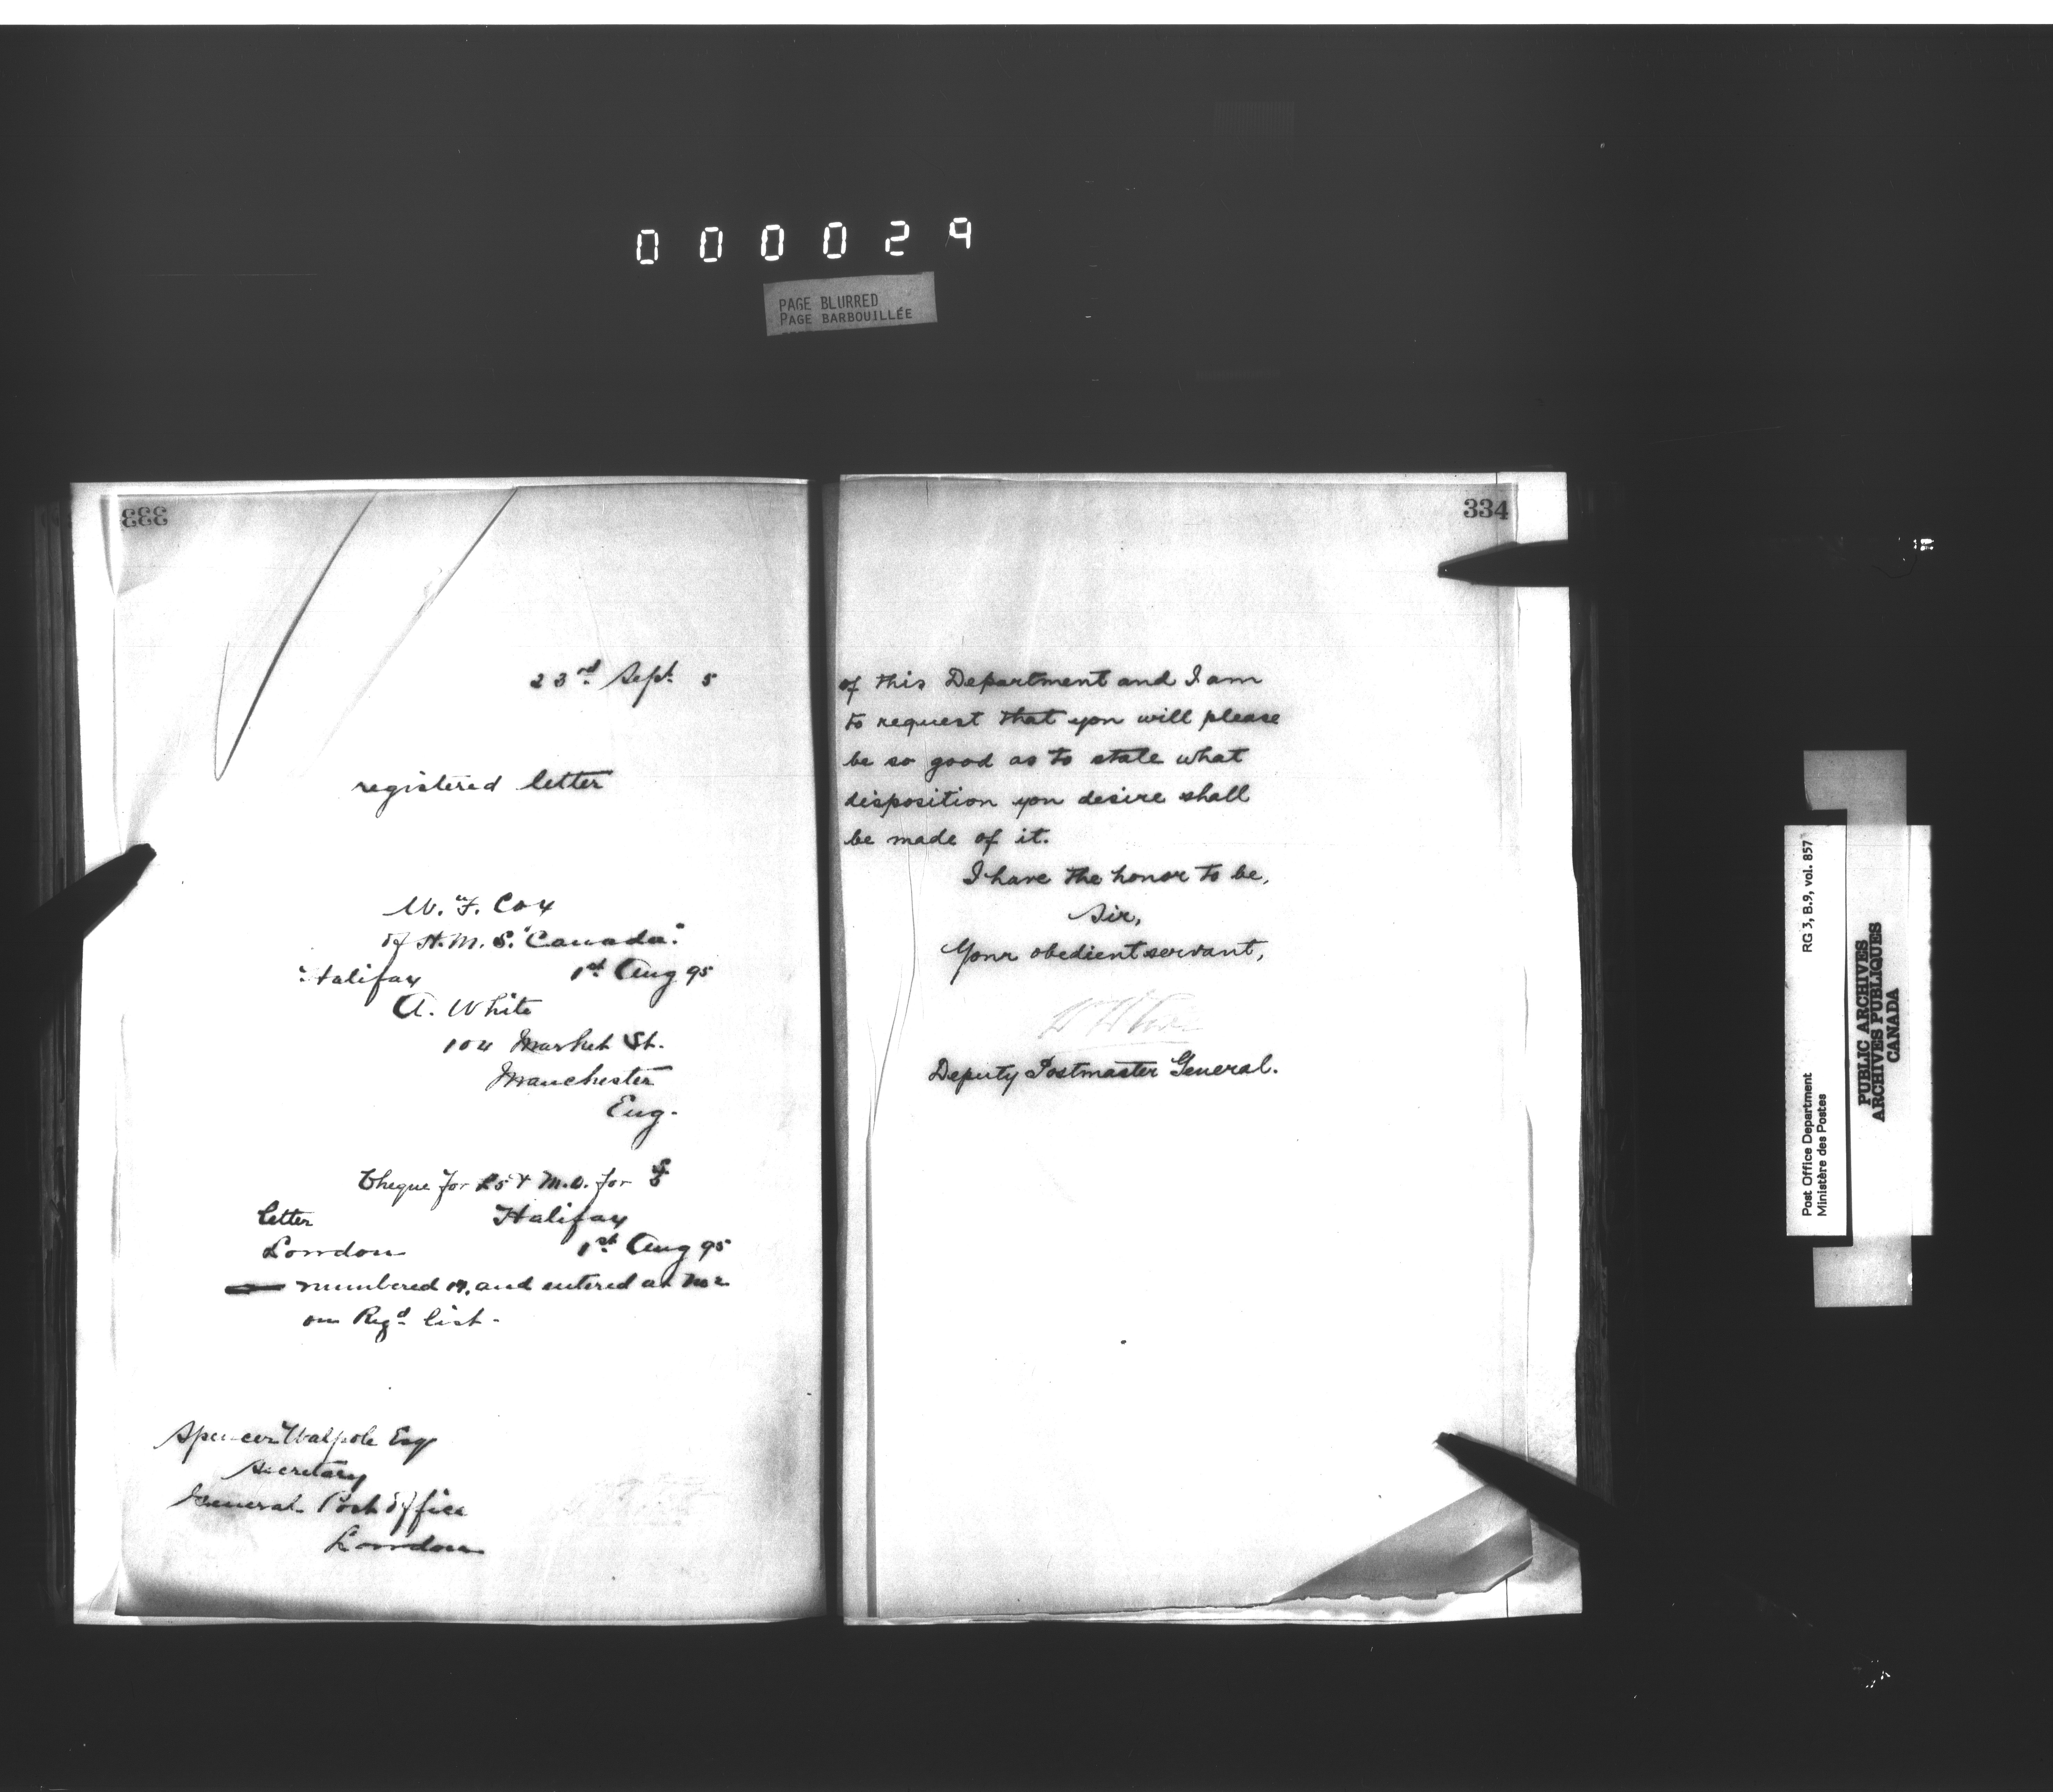 000029
PAGE BLURRED
PAGE BARBOUILLÉE
333
23rd Sept. 5
registered letter
W. F. Cox
of H.M.S. "Canada"
Halifax 1st Aug 95
A. White
104 Market St.
Manchester
Eng.
Cheque for £5 & M.O. for
letter Halifax
London 1st Aug 95
numbered 17, and entered at No 2
on Regd list.
Spencer Walpole Esq
Secretary
General Post Office
London
334
of this Department and I am
to request that you will please
be so good as to state what
disposition you desire shall
be made of it.
I have the honor to be,
Sir,
Your obedient servant,
Deputy Postmaster General.
RG 3, B.9, vol. 857
Post Office Department
Ministère des Postes
PUBLIC ARCHIVES
ARCHIVES PUBLIQUES
CANADA